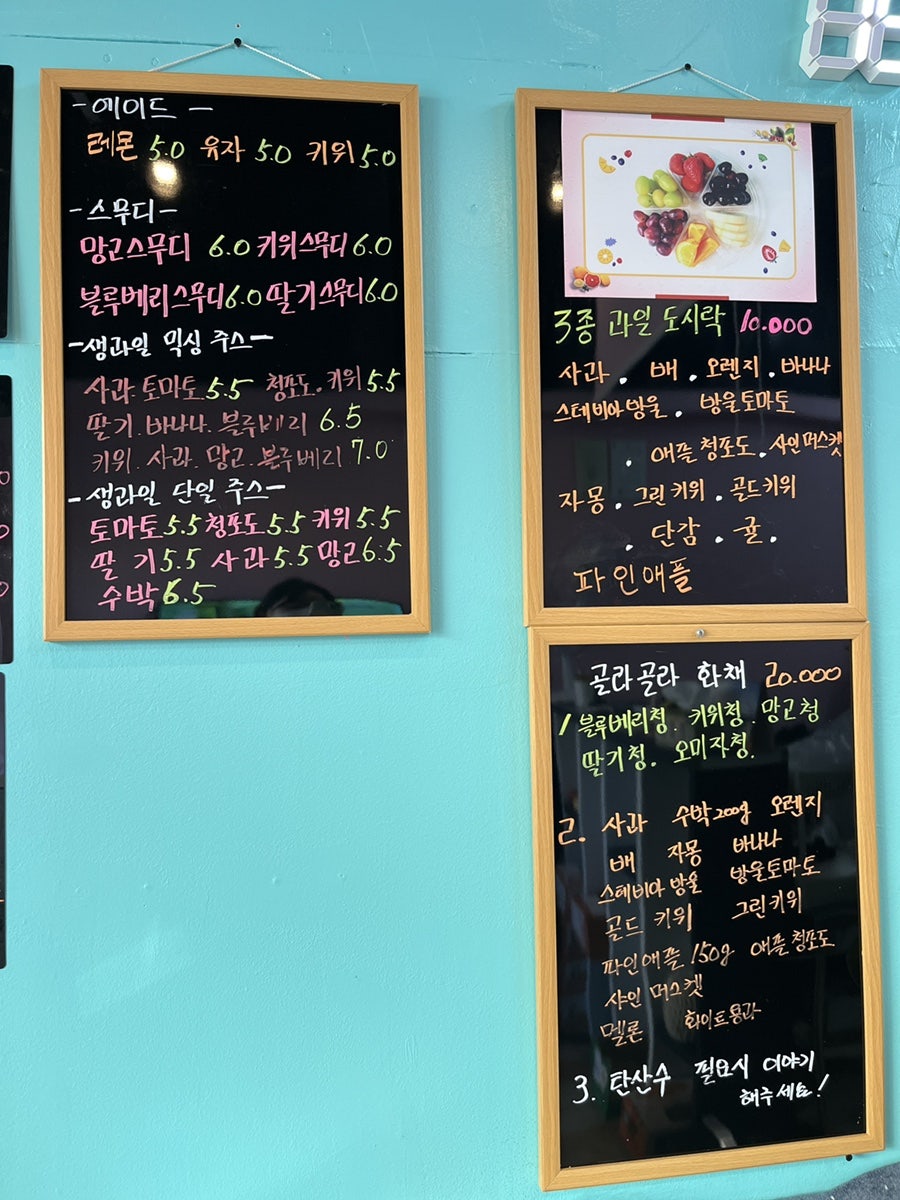 -에이드-
레몬 5.0 유자 5.0 키위 5.0
-스무디-
망고스무디 6.0 키위스무디 6.0
블루베리스무디 6.0 딸기스무디 6.0
-생과일 믹싱 주스-
사과.토마토 5.5 청포도.키위 5.5
딸기.바나나.블루베리 6.5
키위.사과.망고.블루베리 7.0
-생과일 단일 주스-
토마토 5.5 청포도 5.5 키위 5.5
딸기 5.5 사과 5.5 망고 6.5
수박 6.5
3종 과일 도시락 10.000
사과. 배. 오렌지. 바나나
스테비아방울. 방울토마토
. 애플청포도. 샤인머스켓
자몽. 그린키위. 골드키위
. 단감. 귤.
파인애플
골라골라 화채 20.000
1 블루베리청. 키위청. 망고청
딸기청. 오미자청.
2. 사과 수박200g 오렌지
배 자몽 바나나
스테비아방울 방울토마토
골드 키위 그린키위
파인애플 150g 애플청포도
샤인 머스켓
멜론 화이트용과
3. 탄산수 필요시 이야기
해주세요!